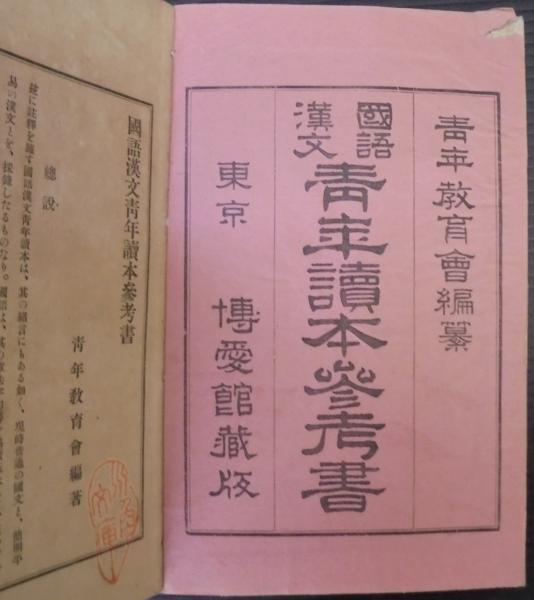 靑年敎育會編纂
國語
漢文
靑年讀本參考書
東京 博愛館藏版
國語漢文靑年讀本參考書
靑年敎育會編著
總說
玆に註釋を施す國語漢文靑年讀本は、其の緖言にもある如く、現時普通の國文と、簡明平
易の漢文とを、採錄したるものなり。國語は、其の